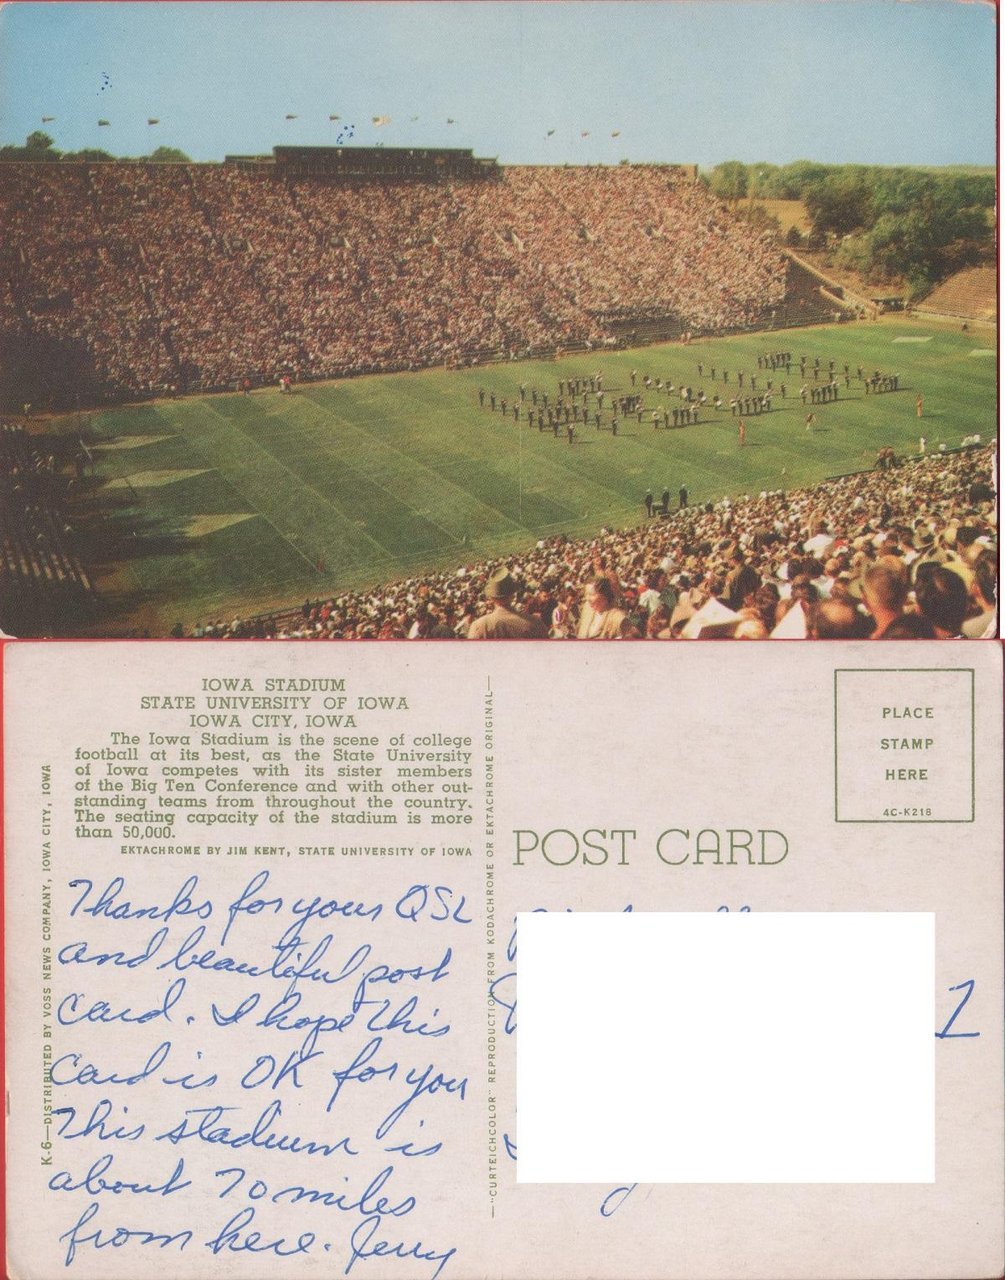 IOWA STADIUM
STATE UNIVERSITY OF IOWA
IOWA CITY, IOWA
The Iowa Stadium is the scene of college
football at its best, as the State University
of Iowa competes with its sister members
of the Big Ten Conference and with other out-
standing teams from throughout the country.
The seating capacity of the stadium is more
than 50,000.
EKTACHROME BY JIM KENT, STATE UNIVERSITY OF IOWA
K-6—DISTRIBUTED BY VOSS NEWS COMPANY, IOWA CITY, IOWA
Thanks for your QSL
and beautiful post
card. I hope this
card is OK for you
This stadium is
about 70 miles
from here. Jerry
—"CURTEICHCOLOR" REPRODUCTION FROM KODACHROME OR EKTACHROME ORIGINAL—
POST CARD
PLACE
STAMP
HERE
4C-K218